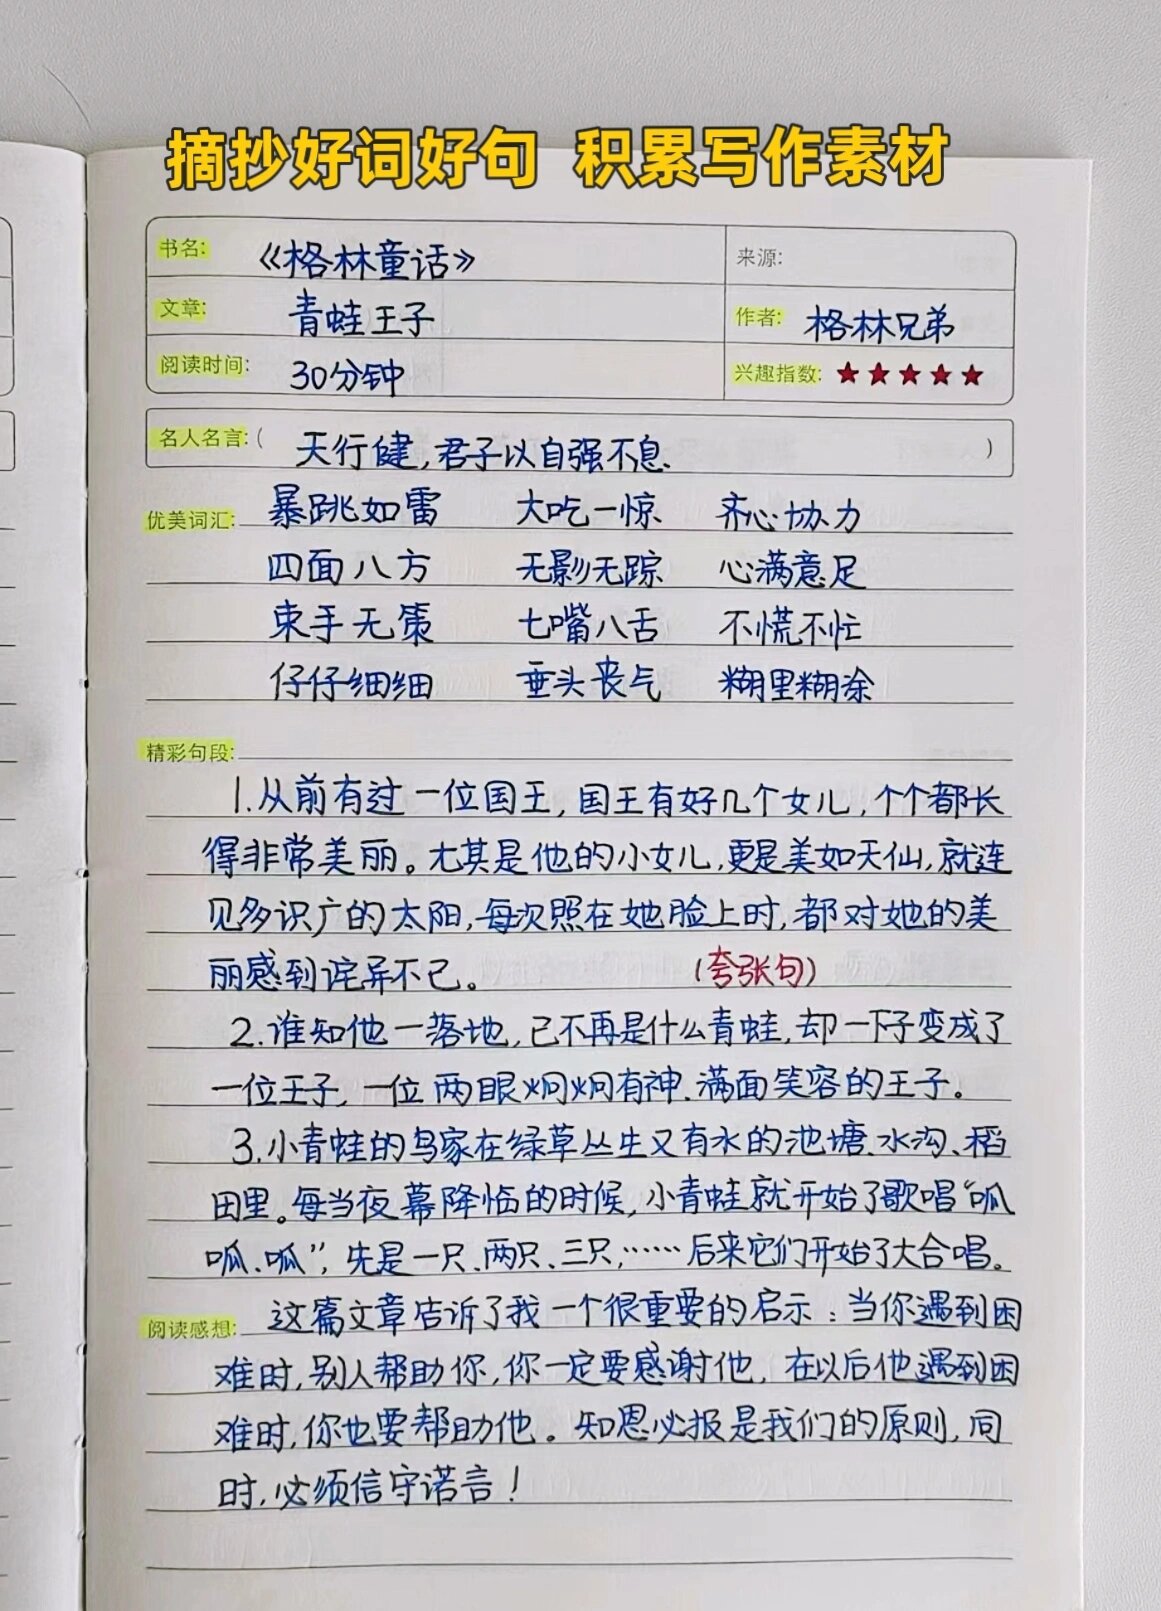 摘抄好词好句 积累写作素材
书名: 《格林童话》 来源:
文章: 青蛙王子 作者: 格林兄弟
阅读时间: 30分钟 兴趣指数: ★★★★★
名人名言:( 天行健,君子以自强不息. )
优美词汇: 暴跳如雷 大吃一惊 齐心协力
四面八方 无影无踪 心满意足
束手无策 七嘴八舌 不慌不忙
仔仔细细 垂头丧气 糊里糊涂
精彩句段:
1.从前有过一位国王,国王有好几个女儿,个个都长
得非常美丽。尤其是他的小女儿,更是美如天仙,就连
见多识广的太阳,每次照在她脸上时,都对她的美
丽感到诧异不已。 (夸张句)
2.谁知他一落地,已不再是什么青蛙,却一下子变成了
一位王子,一位两眼炯炯有神、满面笑容的王子。
3.小青蛙的鸟家在绿草丛生又有水的池塘、水沟、稻
田里。每当夜幕降临的时候,小青蛙就开始了歌唱“呱
呱、呱”,先是一只、两只、三只,……后来它们开始了大合唱。
阅读感想: 这篇文章告诉了我一个很重要的启示:当你遇到困
难时,别人帮助你,你一定要感谢他,在以后他遇到困
难时,你也要帮助他。知恩必报是我们的原则,同
时,必须信守诺言!